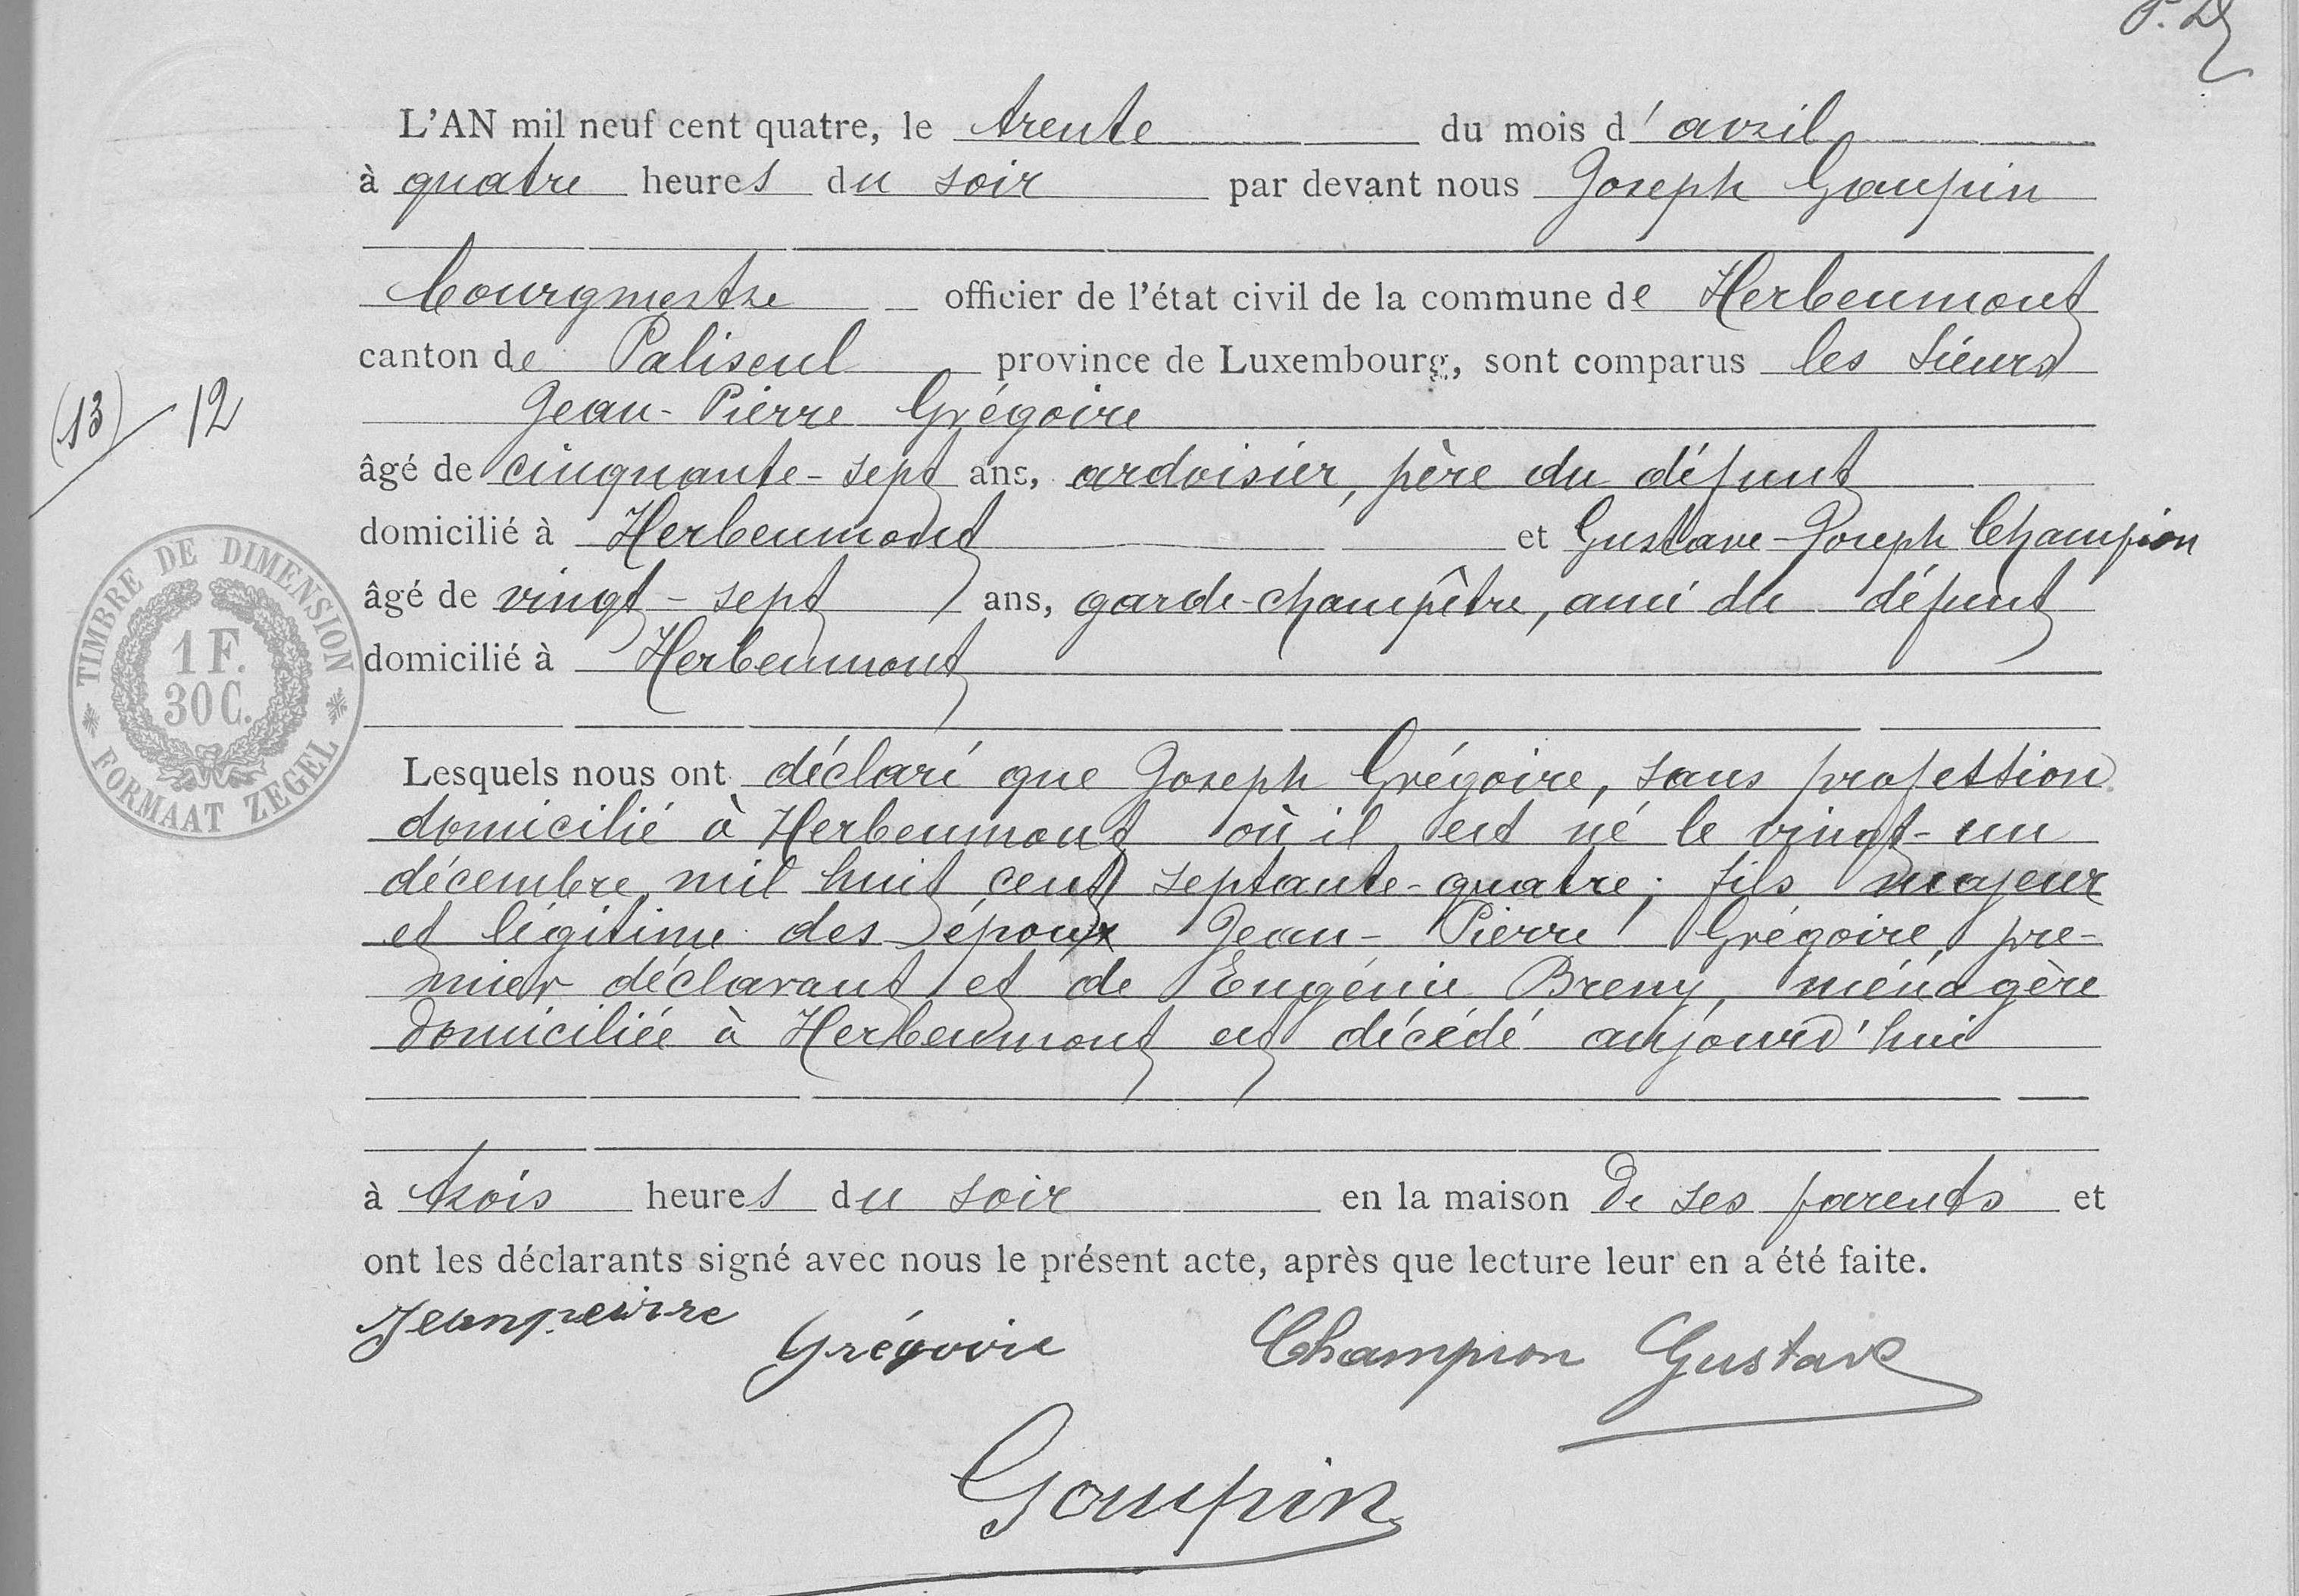 L'AN mil neuf cent quatre, le trente du mois d'avril
à quatre heures du soir par devant nous Joseph Goupin
bourgmestre officier de l'état civil de la commune de Herbeumont
canton de Paliseul province de Luxembourg, sont comparus les sieurs
Jean-Pierre Grégoire
âgé de cinquante-sept ans, ardoisier, père du défunt
domicilié à Herbeumont et Gustave-Joseph Champion
âgé de vingt-sept ans, garde-champêtre, ami du défunt
domicilié à Herbeumont
(13) 12
TIMBRE DE DIMENSION
1 F.
30 C.
FORMAAT ZEGEL
Lesquels nous ont déclaré que Joseph Grégoire, sans profession
domicilié à Herbeumont où il est né le vingt-un
décembre mil huit cent septante-quatre; fils majeur
et légitime des époux Jean-Pierre Grégoire pre-
mier déclarant et de Eugénie Breny, ménagère
domiciliée à Herbeumont est décédé aujourd'hui
à trois heures du soir en la maison de ses parents et
ont les déclarants signé avec nous le présent acte, après que lecture leur en a été faite.
Jeanpeirre Grégoire Champion Gustave
Goupin